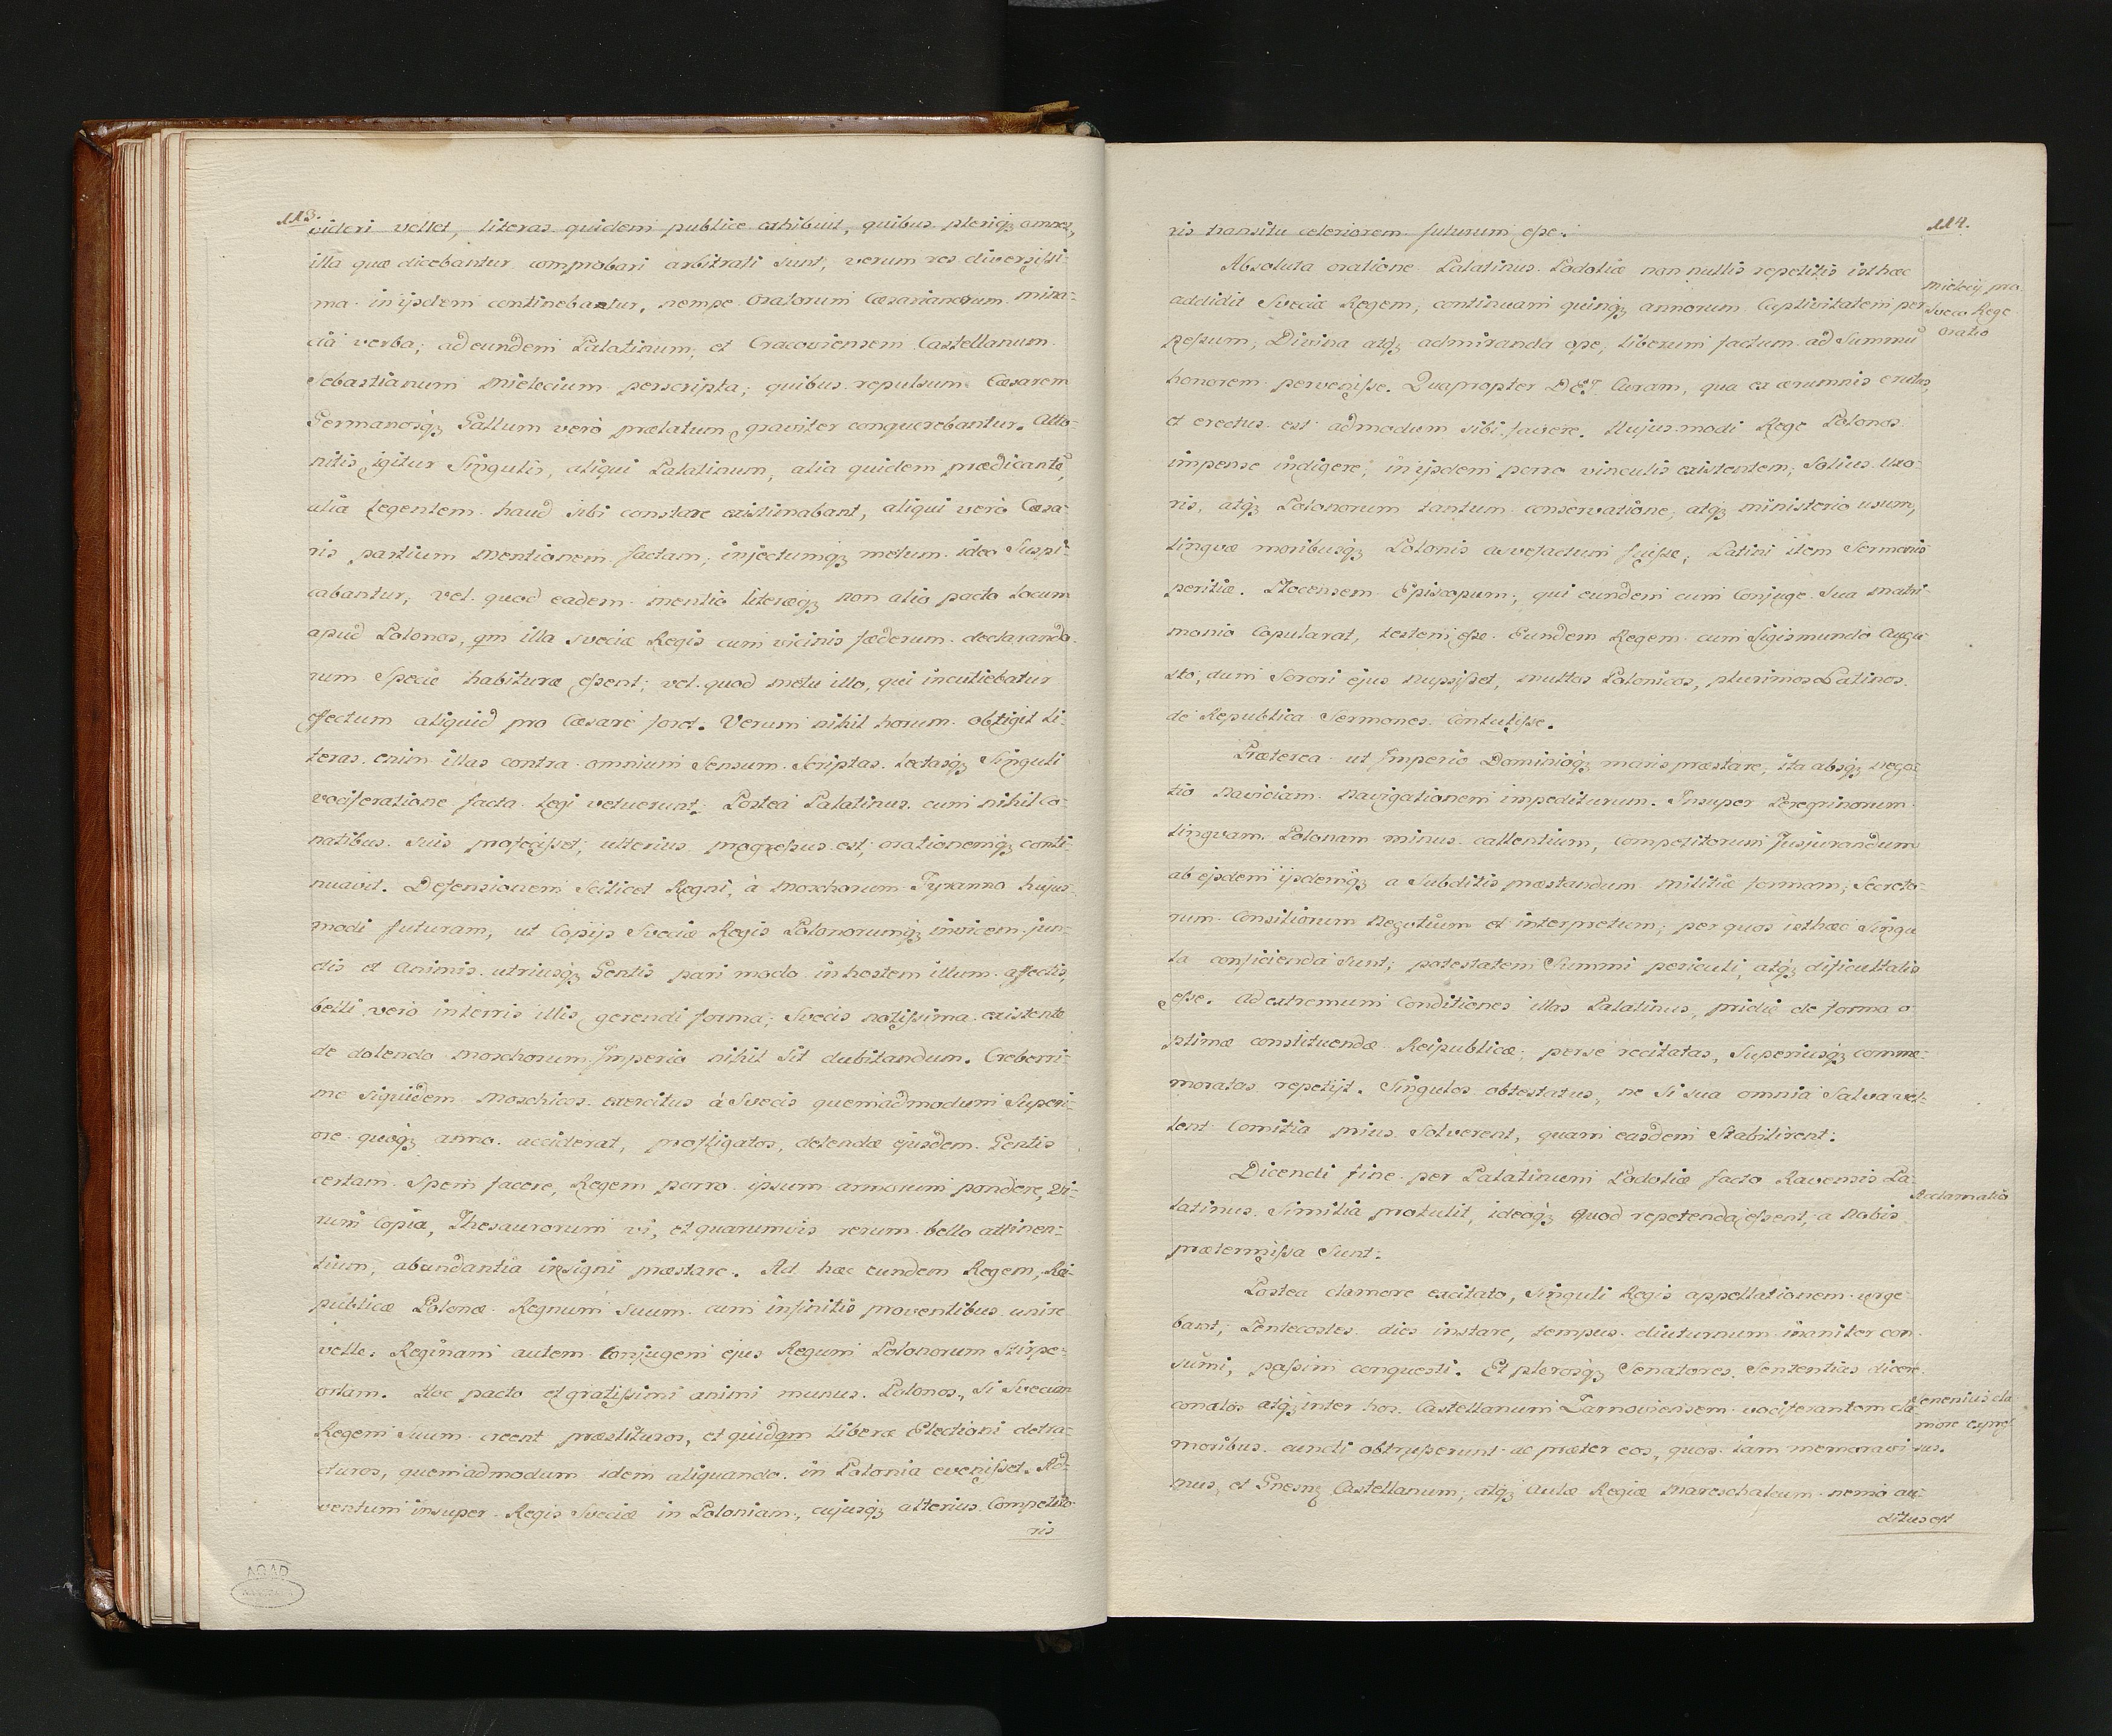 113.
videri vellet, literas quidem publice exhibuit, quibus pleriqꝫ omnes,
illa quæ dicebantur comprobari arbitrati sunt, verum res diversissi-
ma in ijsdem continebantur, nempe Oratorum Cæsarianorum mina-
cia verba; ad eundem Palatinum, et Cracoviensem Castellanum
Sebastianum Mielecium perscripta; quibus repulsum Cæsarem
Germanosqꝫ Gallum verò prælatum graviter conquerebantur. Atto-
nitis igitur Singulis, aliqui Palatinum, alia quidem prædicante,
alia legentem haud sibi constare existimabant, aliqui verò Cæsa-
ris partium mentionem factam, injectumqꝫ metum ideo Suspi-
cabantur, vel quod eadem mentio literæqꝫ non alio pacto locum
apud Polonos, qm illa Sveciæ Regis cum vicinis fæderum declarando-
rum Specie habituræ essent; vel quod metu illo, qui incutiebatur
effectum aliquid pro Cæsare foret. Verum nihil horum obtigit li-
teras enim illas contra omnium Sensum Scriptas lectasqꝫ Singuli
vociferatione facta legi vetuerunt. Postea Palatinus cum nihil co-
natibus suis profecisset, ulterius progressus est, orationemqꝫ conti-
nuavit. Defensionem Scilicet Regni, à Moschorum Tyranno hujus-
modi futuram, ut Copijs Sveciæ Regis Polonorumqꝫ invicem jun-
ctis et Animis utriusqꝫ Gentis pari modo in hostem illum affectis,
belli verò in terris illis gerendi forma, Svecis notissima existente
de dolendo Moschorum Imperio nihil sit dubitandum. Creberri-
me siquidem Moschicos exercitus á Svecis quemadmodum Superi-
ore quoqꝫ anno acciderat, profligatos, delendæ ejusdem Gentis
certam Spem facere, Regem porro ipsum armorum pondere, Vi-
rum Copia, Thesaurorum vi, et quarumvis rerum bello attinen-
tium, abundantia insigni præstare. Ad hæc eundem Regem, Rei-
publicæ Polonæ Regnum suum cum infinitis proventibus unire
velle: Reginam autem Conjugem ejus Regum Polonorum Stirpe
ortam. Hoc pacto et gratissimi animi munus Polonos, si Sveciæ
Regem suum creent præstituros, et quidqm liberæ Electioni detra-
cturos, quemadmodum idem aliquando in Polonia evenisset. Ad-
ventum insuper Regis Sveciæ in Poloniam, cujusqꝫ alterius Competito-
ris
AGAD
114.
ris transitu celeriorem futurum esse.
Absoluta oratione Palatinus Podoliæ non nullis repetitis isthæc
addidit Sveciæ Regem, continuam quinqꝫ annorum Captivitatem per-
pessum, Divina atqꝫ admiranda ope, liberum factum ad Summũ
honorem pervenisse. Quapropter DEI Curam, qua ex ærumnis erutus,
et erectus est admodum sibi favere. Hujusmodi Rege Polonos
impense indigere, in ijsdem porro vinculis existentem, Solius Uxo-
ris, atqꝫ Polonorum tantum conservatione, atqꝫ ministerio usum,
lingvæ moribusqꝫ Polonis asvefactum fuisse, Latini item Sermonis
peritiæ. Plocensem Episcopum, qui eundem cum Conjuge Sua matri-
monio Copularat, testem esse. Eundem Regem cum Sigismundo Augu-
sto, dum Sorori ejus nupsisset, multos Polonicos, plurimos Latinos
de Republica Sermones Contulisse.
Præterea ut Imperio Dominioqꝫ maris præstare, ita absqꝫ nego-
tio Naviciam Navigationem impediturum. Insuper Peregrinorum
lingvam Polonam minus callentium, Competitorum Jusjurandum
ab ejsdem ijsdemqꝫ a Subditis præstandum Militiæ formam, Secreto-
rum Consiliorum Negotium et interpretum, per quos isthæc Singu
la conficienda sunt, potestatem Summi periculi, atqꝫ dificultatis
esse. Ad extremum Conditiones illas Palatinus, pridie de forma o-
ptimæ constituendæ Reipublicæ, per se recitatas, Superiusqꝫ comme-
moratas repetijt. Singulos obtestatus, ne si sua omnia Salva vel-
lent Comitia prius Solverent, quam easdem Stabilirent.
Dicendi fine per Palatinum Podoliæ facto Ravensis Pa-
latinus Similia protulit, ideoqꝫ quod repetenda essent, a Nobis
prætermissa Sunt.
Postea clamore excitato, Singuli Regis appellationem urge-
bant, Pentecostes dies instare, tempus diuturnum inaniter con-
sumi, passim conquesti. Et plerosqꝫ Senatores Sententias dicere
conatos atqꝫ inter hos Castellanum Tarnoviensem vociferantem cla-
moribus cuncti obtruserunt ac præter eos, quos iam memoravi-
mus, et Gnesnꝫ Castellanum, atqꝫ Aulæ Regiæ Mareschalcum nemo au-
ditus est
Mielecij pro
Sveco Rege
Oratio
Acclamatio
Zenenius cla-
more expres-
sus.